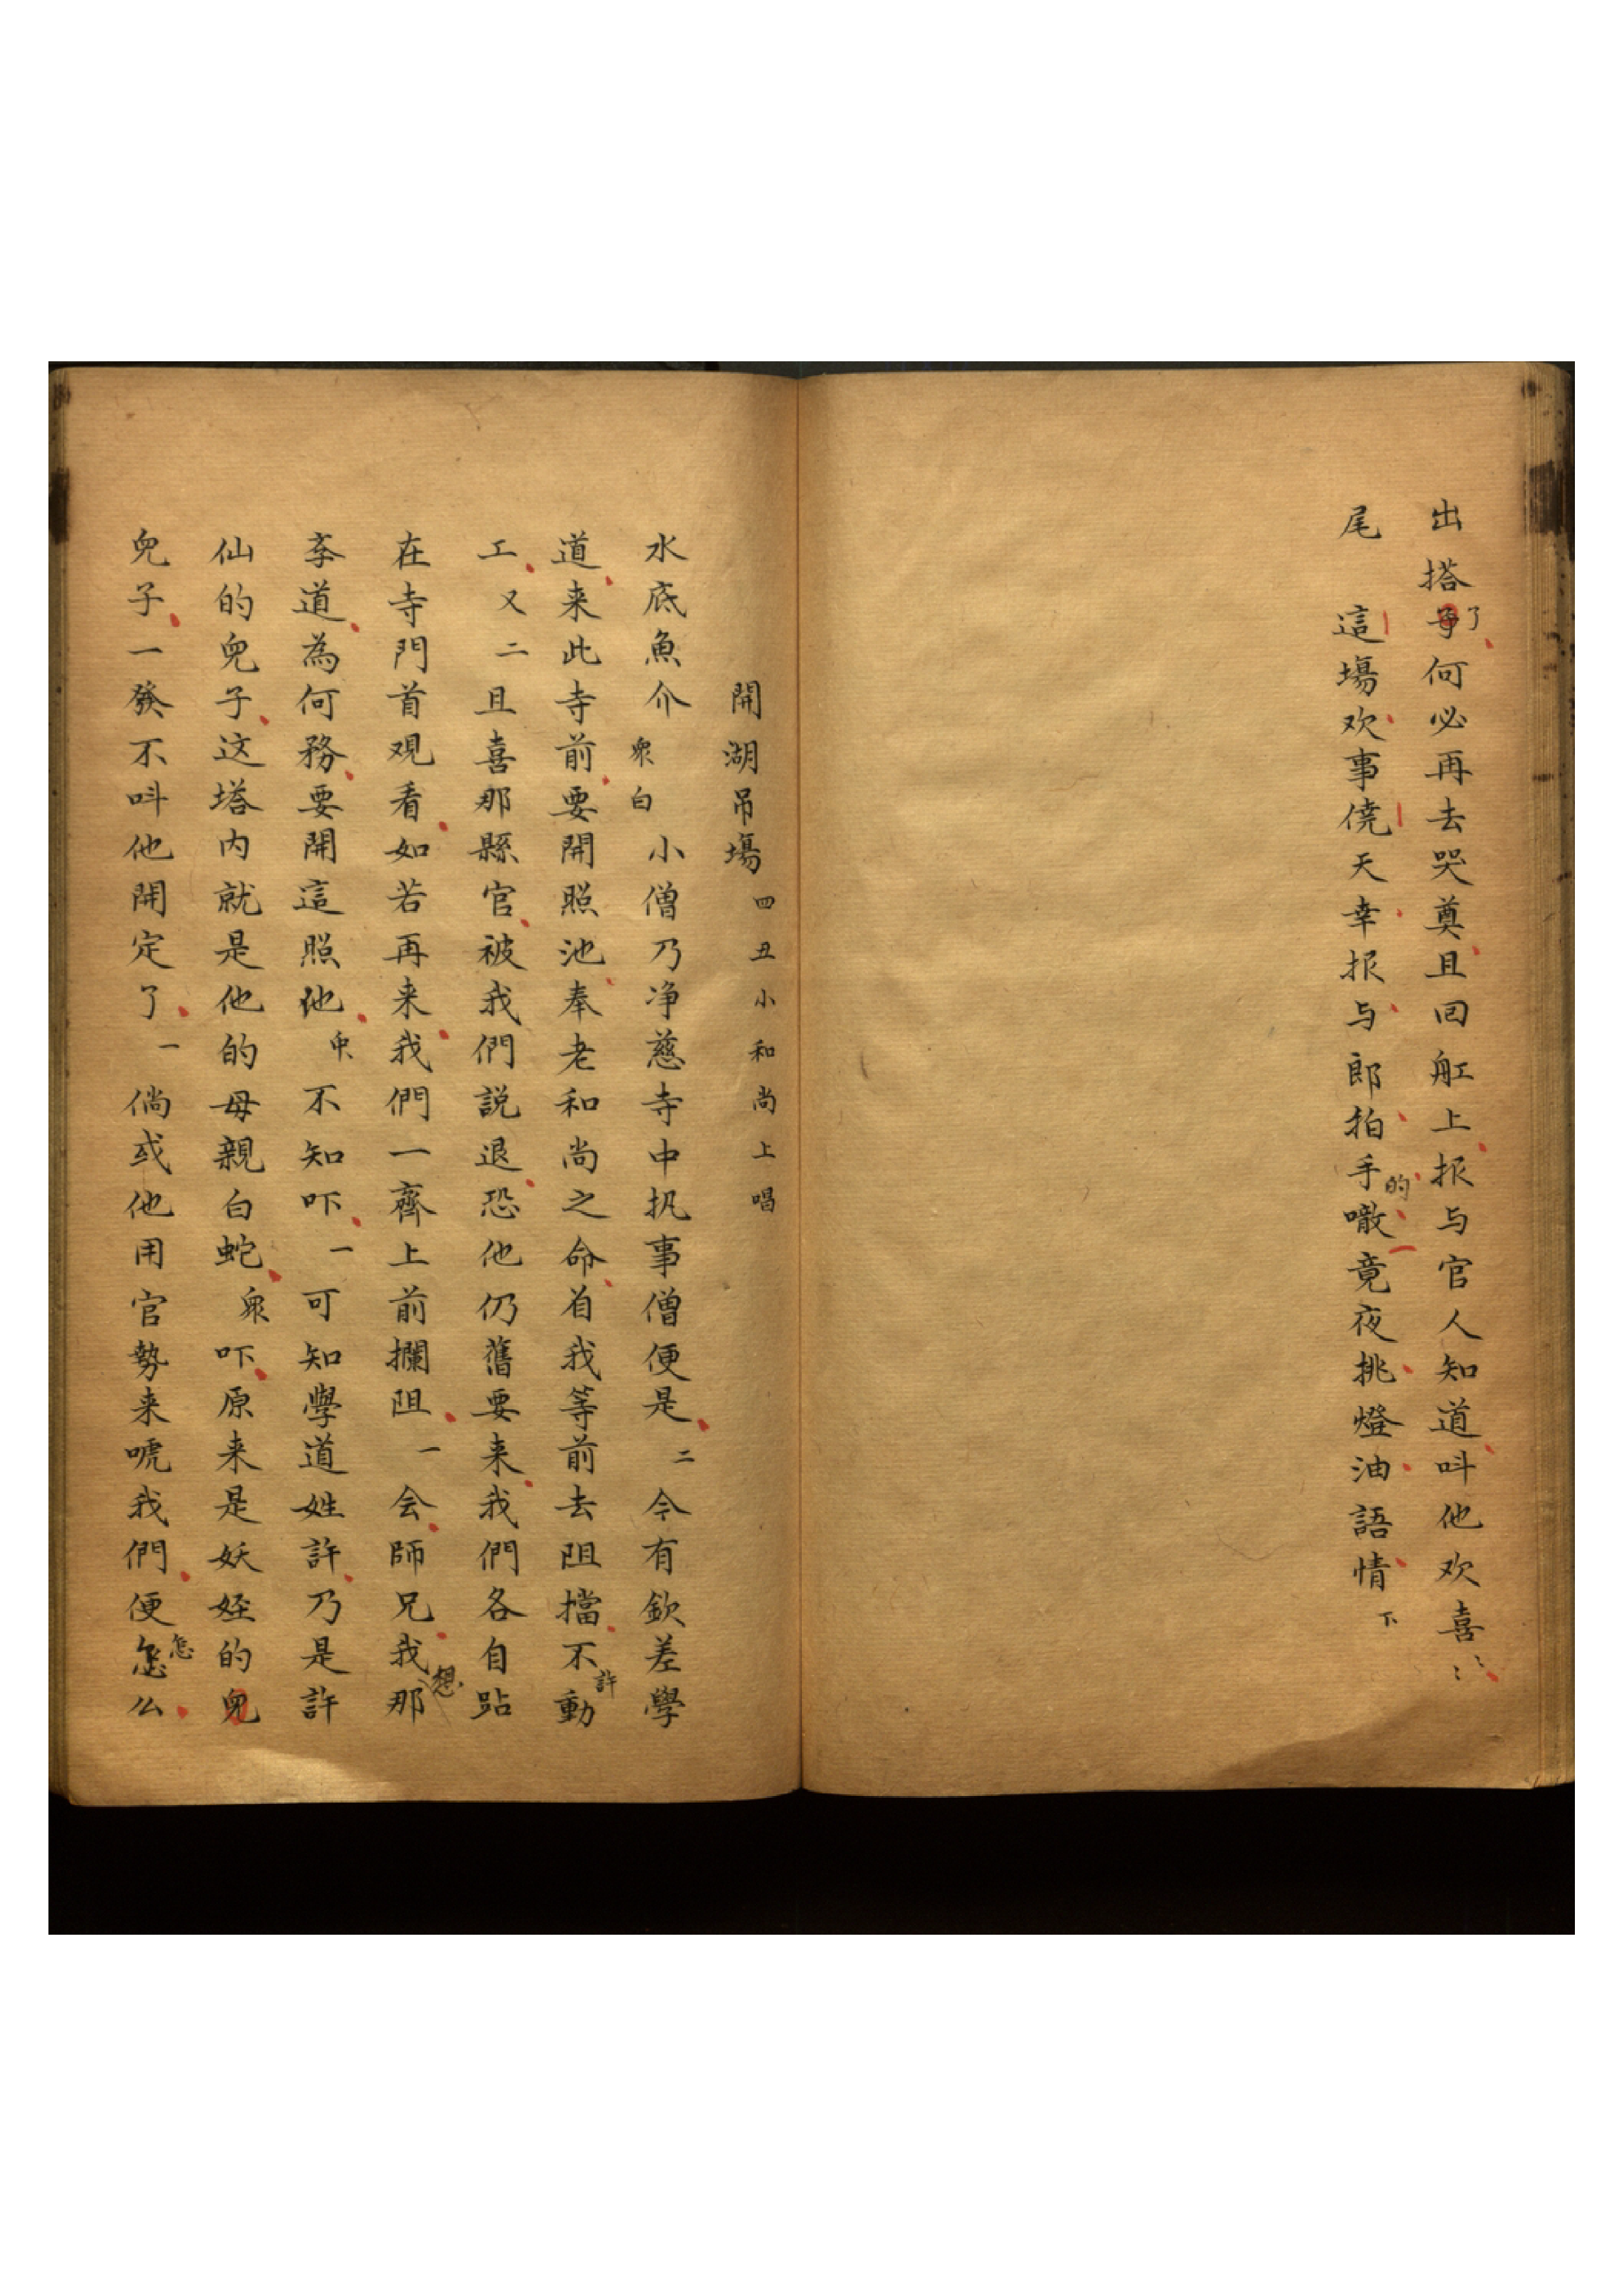 出搭了何必再去哭奠且回舡上报与官人知道呌他欢喜〻
尾　這塲欢事僥天幸报与郎拍手的噉竟夜挑燈油語情下
開湖吊塲四丑小和尚上唱
水底魚介　衆白　小僧乃净慈寺中执事僧便是　二　今有欽差學
道来此寺前要開照池奉老和尚之命着我等前去阻擋不許動
工　又二　且喜那縣官被我們説退恐他仍舊要来我們各自跕
在寺門首观看如若再来我們一齊上前攔阻　一　会師兄我想那
李道為何務要開這照他　衆　不知吓　一　可知學道姓許乃是許
仙的兒子这塔内就是他的母親白蛇　衆　吓原来是妖姪的兒
兒子一發不呌他開定了　一　倘或他用官勢来唬我們便怎怎么